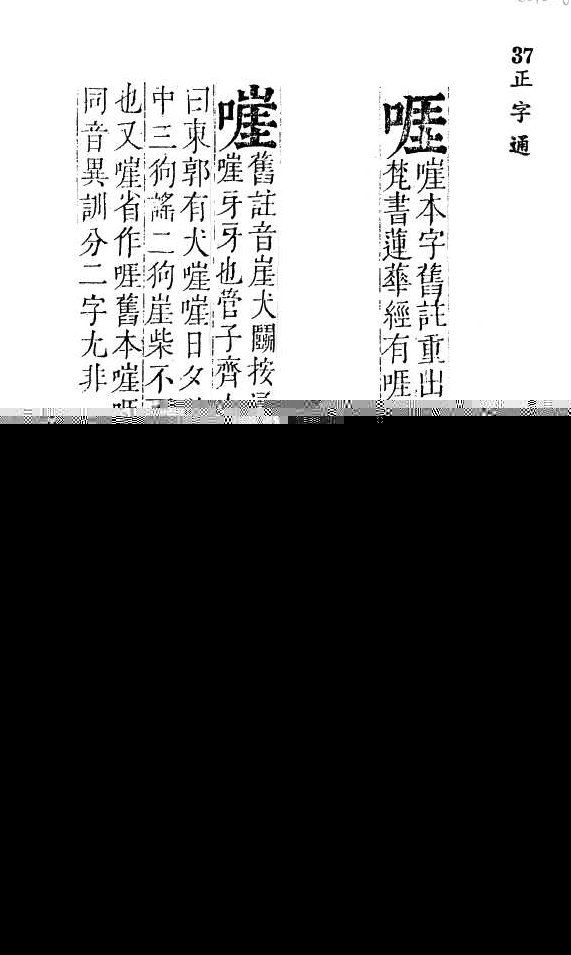 37
正字通
啀
嘊本字舊註重出
梵書蓮華經有啀
嘊
舊註音崖犬鬭按
嘊牙牙也管子齊
曰東郭有犬嘊嘊日夕
中三狗謠二狗崖柴不
也又嘊省作啀舊本嘊
同音異訓分二字尢非